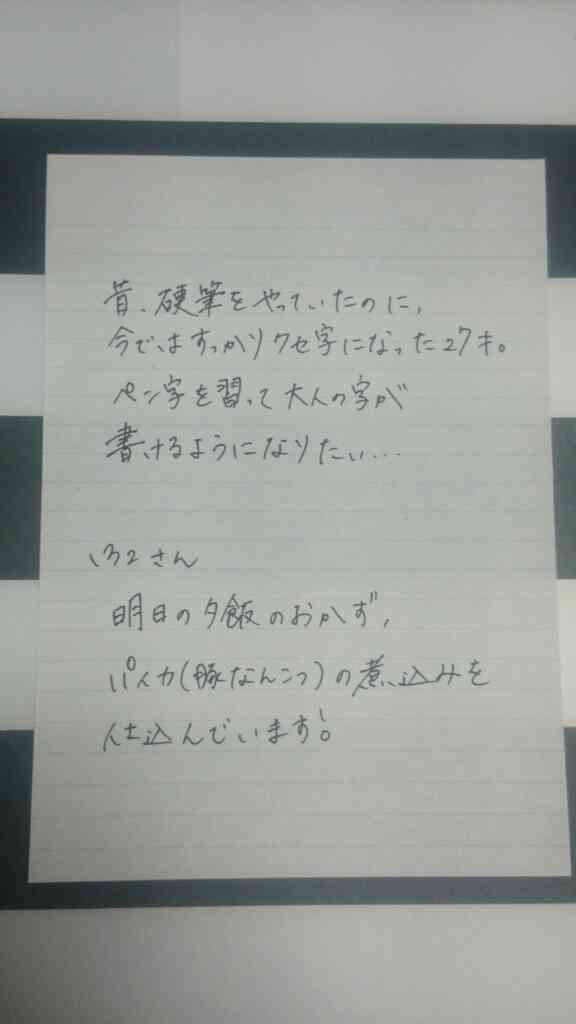 昔、硬筆をやっていたのに、
今ではすっかりクセ字になった27才。
ペン字を習って大人の字が
書けるようになりたい…
さん
明日の夕飯のおかず、
パイカ(豚なんこつ)の煮込みを
仕込んでいます！